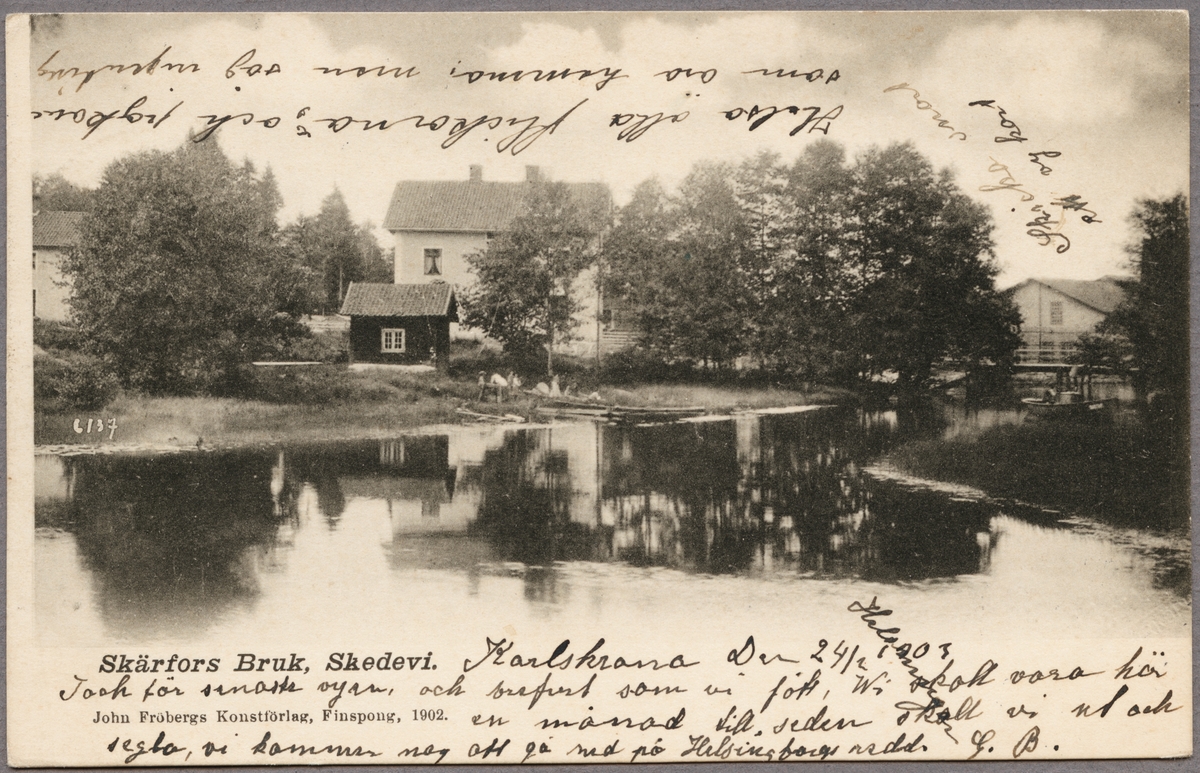 Skärfors Bruk, Skedevi.
Karlskrona Den 24/2 1903
Tack för senaste vyen, och brefvet som vi fått, Wi skall vara här
John Fröbergs Konstförlag, Finspong, 1902.
en månad till, seden skall vi ut och
segla, vi kommer nog att gå ned på Helsingborgs redd. G. B.
Helsa alla flickorna, och
som äro hemma, men säg ingenting
Skicka snart
ett og kort
6137